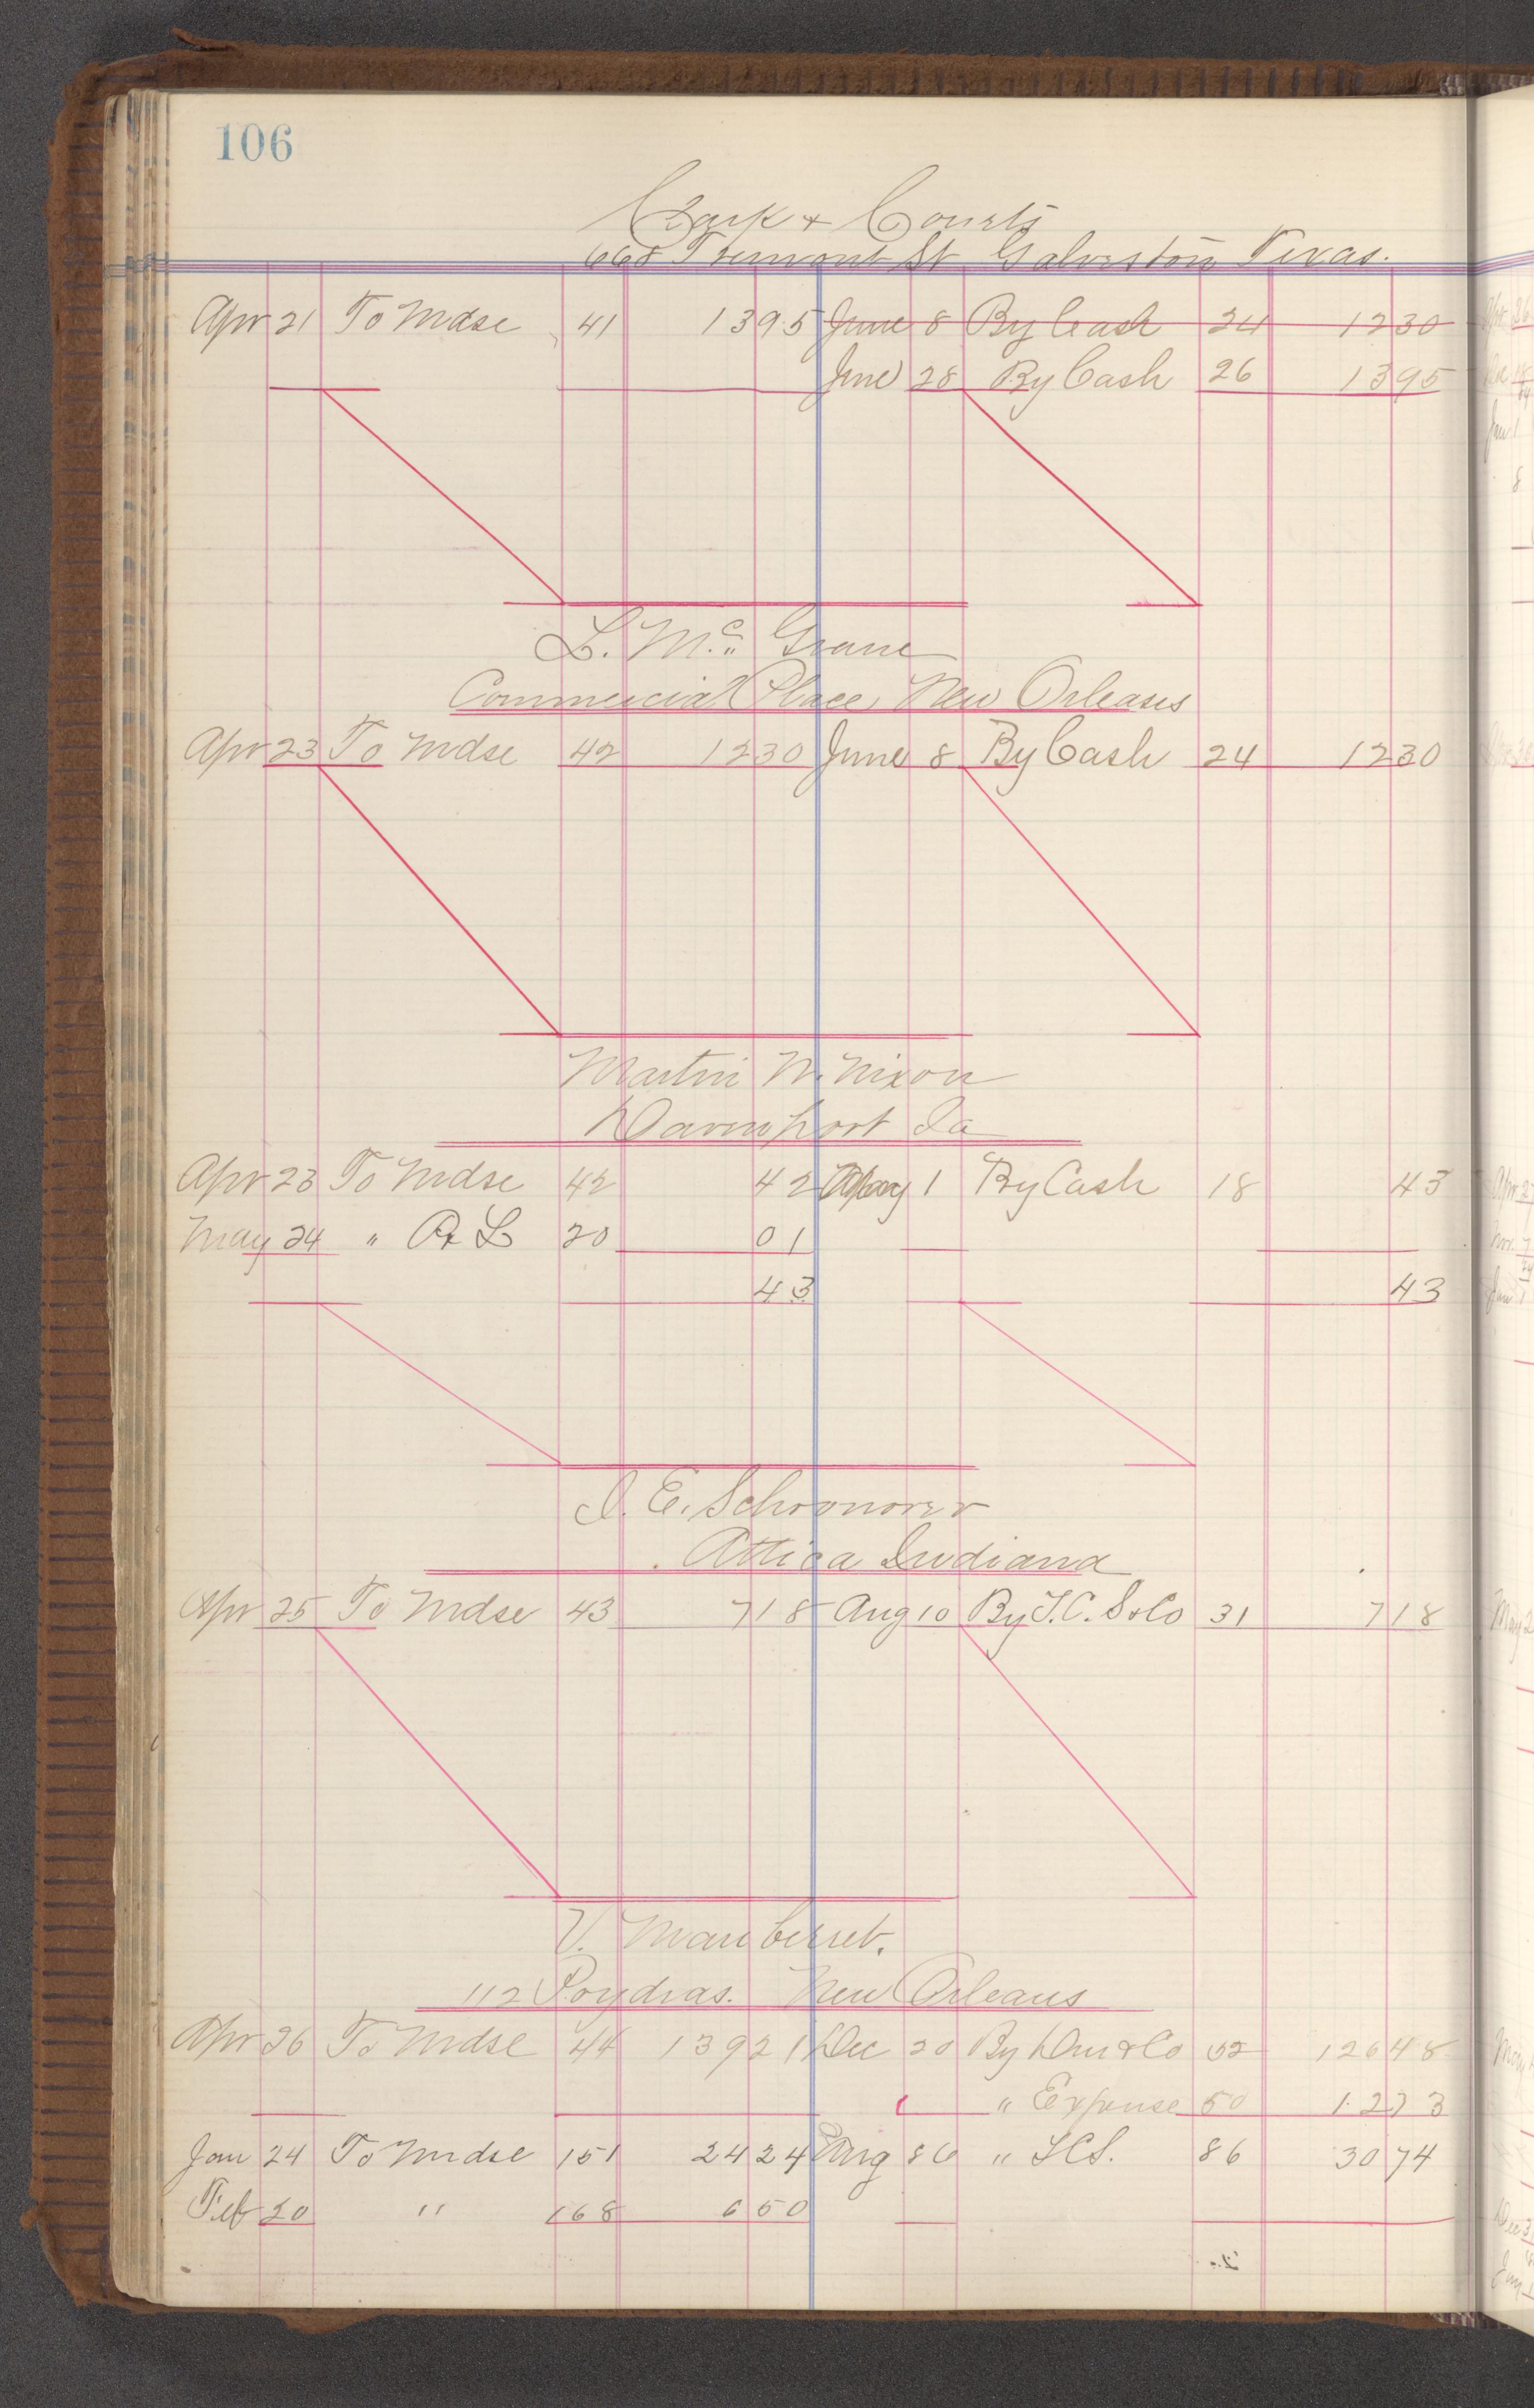 106
Clark & Courts
668 Tremont St Galveston Texas.
Apr 21 To Mdse 41 13 95 June 8 By Cash 24 12 30
June 28 By Cash 26 13 95
L. Mc. Grane
Commercial Place, New Orleans
Apr 23 To Mdse 42 12 30 June 8 By Cash 24 12 30
Martin W. Nixon
Davenport Ia
Apr 23 To Mdse 42 42 May 1 By Cash 18 43
May 24 " P & L 20 01
43 43
I. E. Schoonover
Attica Indiana
Apr 25 To Mdse 43 7 18 Aug 10 By T. C. S & Co 31 7 18
V. Mauberret.
112 Poydras. New Orleans
Apr 26 To Mdse 44 139 21 Dec 20 By Dun & Co 52 126 48
" Expense 50 12 73
Jan 24 To Mdse 151 24 24 Aug 86 " T C S. 86 30 74
Feb 20 " 168 6 50